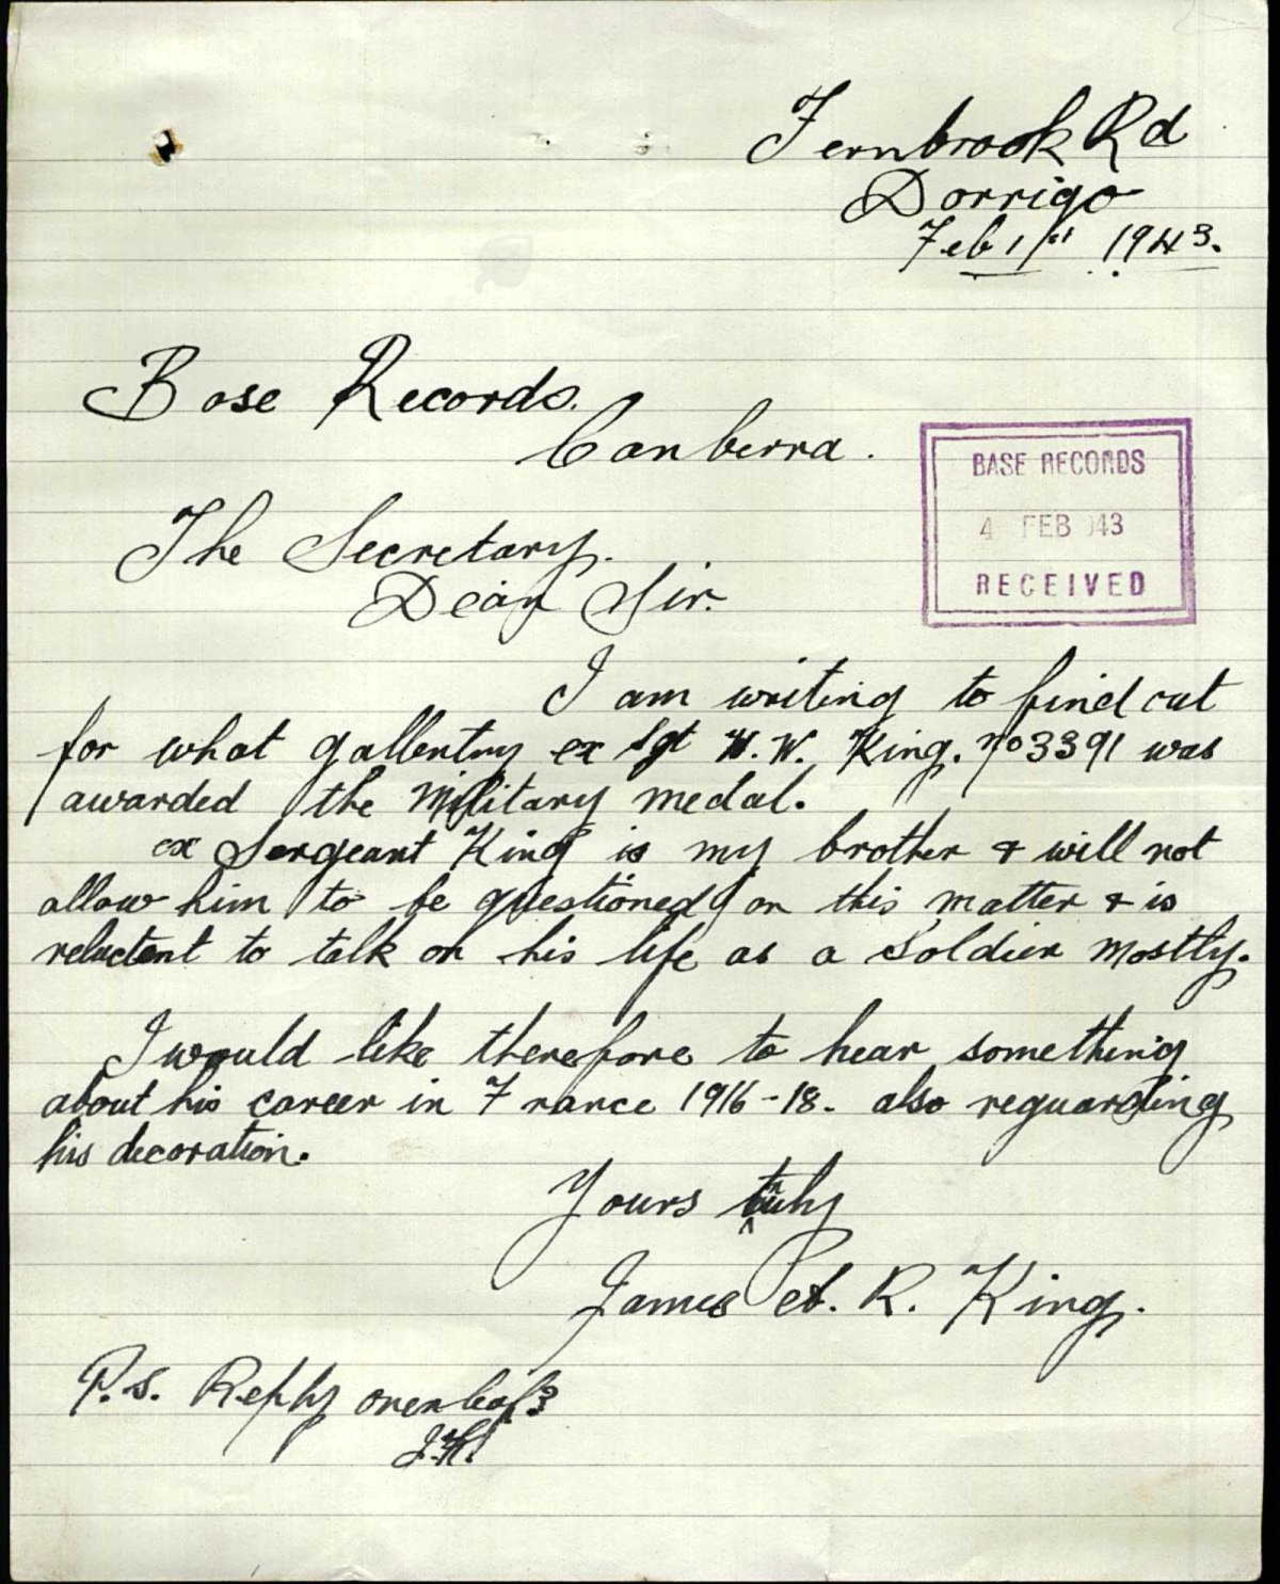 Fernbrook Rd
Dorrigo
Feb 1st 1943.
Base Records.
Canberra.
BASE RECORDS
4 FEB 43
RECEIVED
The Secretary.
Dear Sir.
I am writing to find out
for what gallentry ex Sgt W. W. King. No 3391 was
awarded the Military medal.
ex Sergeant King is my brother & will not
allow him to be questioned on this matter & is
reluctent to talk on his life as a Soldier mostly.
I would like therefore to hear something
about his career in France 1916-18. also reguarding
his decoration.
Yours truly
James R. King.
P.S. Reply overleaf
J.K.